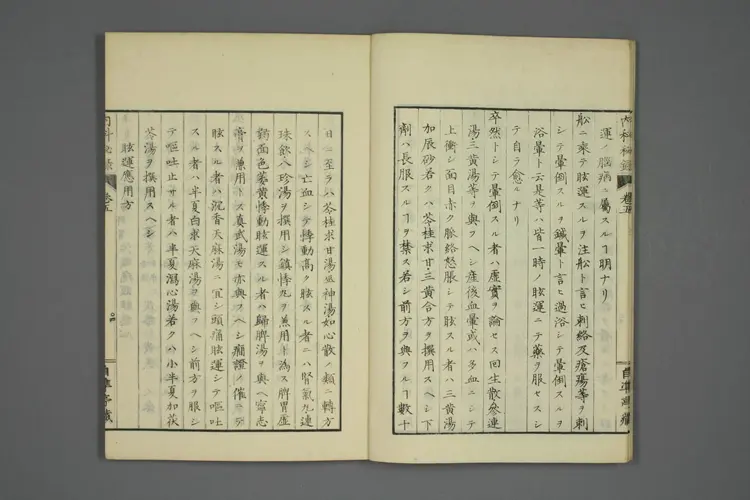 内科秘録 巻五
運ノ脳病ニ属スルヿ明ナリ
舩ニ乗テ眩運スルヲ注舩ト言ヒ刺絡及瘡瘍等ヲ刺
シテ暈倒スルヲ鍼暈ト言ヒ過浴シテ暈倒スルヲ
浴暈ト云是等ハ皆一時ノ眩運ニテ薬ヲ服セスシ
テ自ラ愈ルナリ
卒然トシテ暈倒スル者ハ虚實ヲ論セス回生散參連
湯三黄湯等ヲ與フヘシ産後血暈或ハ多血ニシテ
上衝シ面目赤ク脉絡怒脹シテ眩スル者ハ三黄湯
加辰砂若クハ苓桂朮甘三黄合方ヲ撰用スヘシ下
劑ハ長服スルヿヲ禁ス若シ前方ヲ與フルヿ數十
日ニ至ラハ苓桂朮甘湯巫神湯如心散ノ類ニ轉方
スヘシ亡血シテ悸動高ク眩スル者ニハ腎氣丸連
珠飲八珍湯ヲ撰用シ鎮悸丸ヲ兼用ト為ス脾胃虚
弱面色萎黄悸動眩運スル者ハ歸脾湯ヲ與ヘ寧志
膏ヲ兼用トス真武湯モ亦與フヘシ癇證ノ催ニテ
眩スル者ハ沉香天麻湯ニ宜シ頭痛眩運シテ嘔吐
スル者ハ半夏白朮天麻湯ヲ與フヘシ前方ヲ服シ
テ嘔吐止サル者ハ半夏瀉心湯若クハ小半夏加茯
苓湯ヲ撰用スヘシ
眩運應用方
内科秘録 巻五